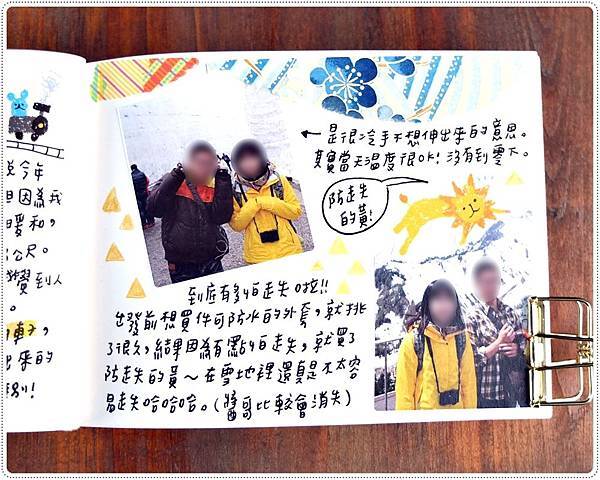 說今年
但因為我
暖和，
公尺。
感覺到人
。
出乎的
別！
←是很冷手不想伸出來的意思。
其實當天溫度很OK！沒有到零下。
防走失
的黃！
到底有多怕走失啦！！
出發前想買件可防水的外套，就挑
了很久，結果因為有點怕走失，就買了
防走失的黃～在雪地裡還真是不太容
易走失哈哈哈。（醬可比較會消失）